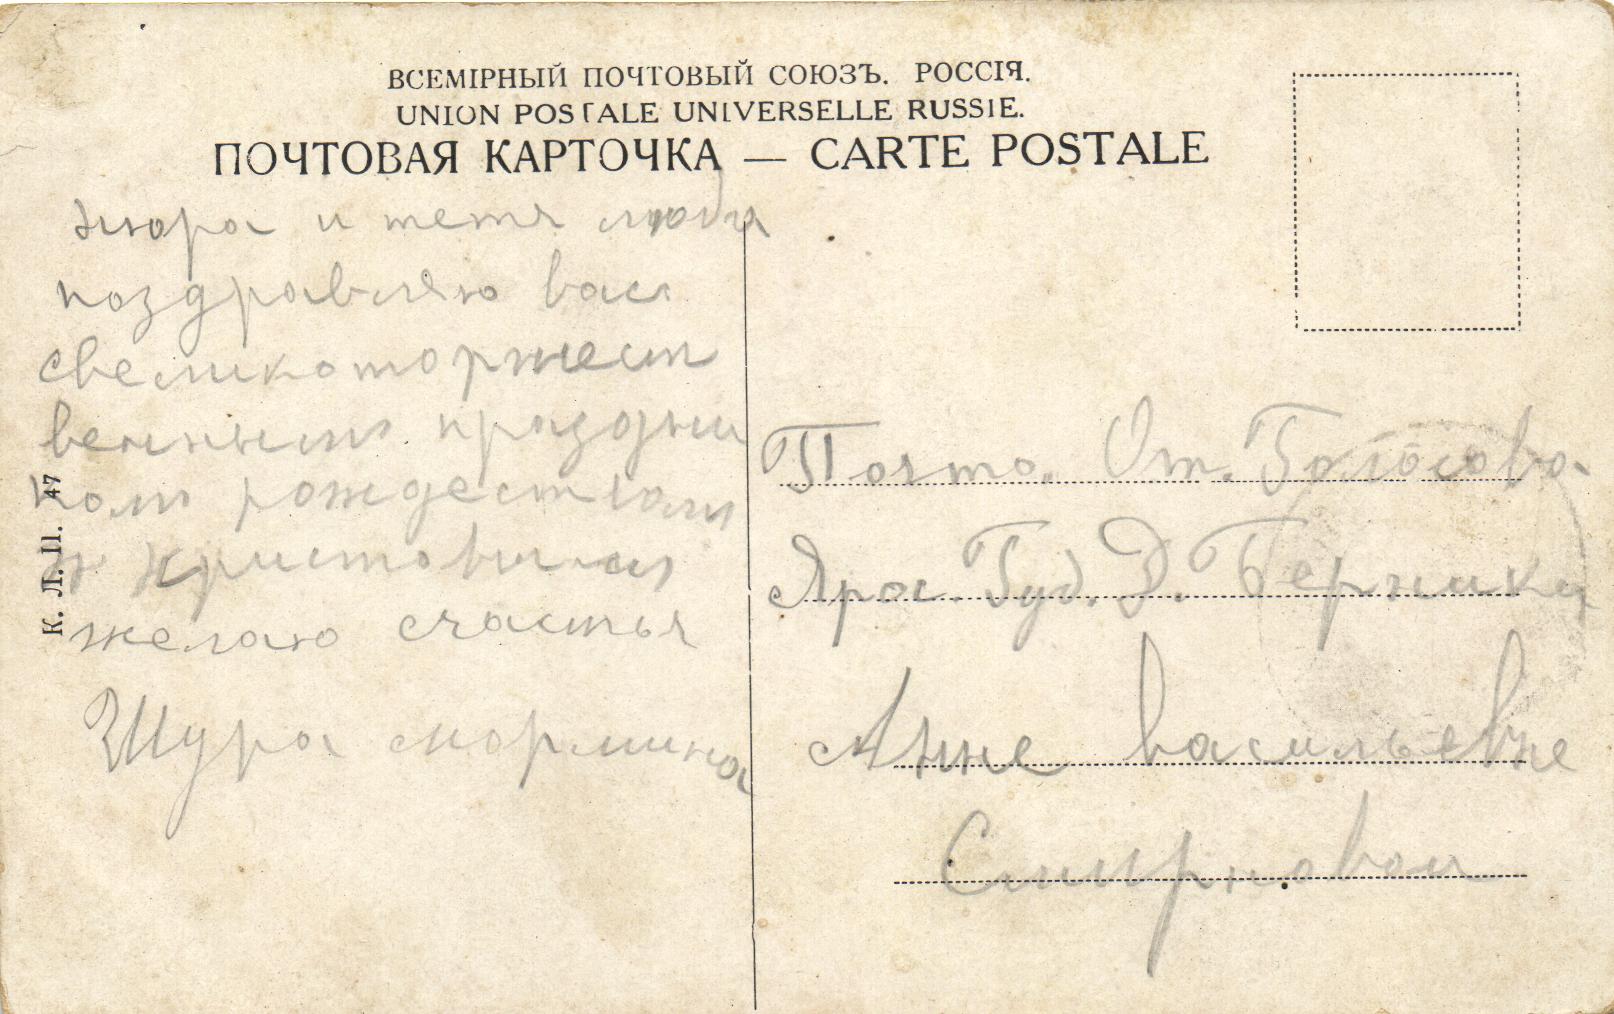 ВСЕМІРНЫЙ ПОЧТОВЫЙ СОЮЗЪ. РОССІЯ.
UNION POSTALE UNIVERSELLE RUSSIE.
ПОЧТОВАЯ КАРТОЧКА — CARTE POSTALE
нюра и тетя люба
поздравляю вас
свеликоторжест
венным праздни
ком рождеством
христовым
желаю счастья
Шура
К. Л. П. 47
Почто. От.
Яроc. Губ. Д.
Анне васильевне
Смирновой